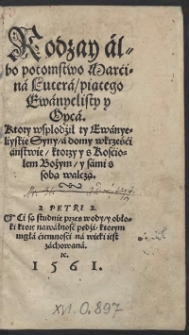 Rodzay ál-
bo potomstwo Marci-
ná Luterá / piątego
Ewányelisty y
Oycá.
Ktory wspłodził ty Ewányе-
lyskie Syny / á domy w krześći
áństwie / ktorzy y s Kośćio-
łem Bożym / y sámi s
sobą wálczą.
2. PETRI 2.
Ci są studnie przes wody / y obło-
ki ktore náwáłność pędzi / ktorym
mgłá ćiemnośći ná wieki iest
záchowána.
1561.
XVI. O. 897